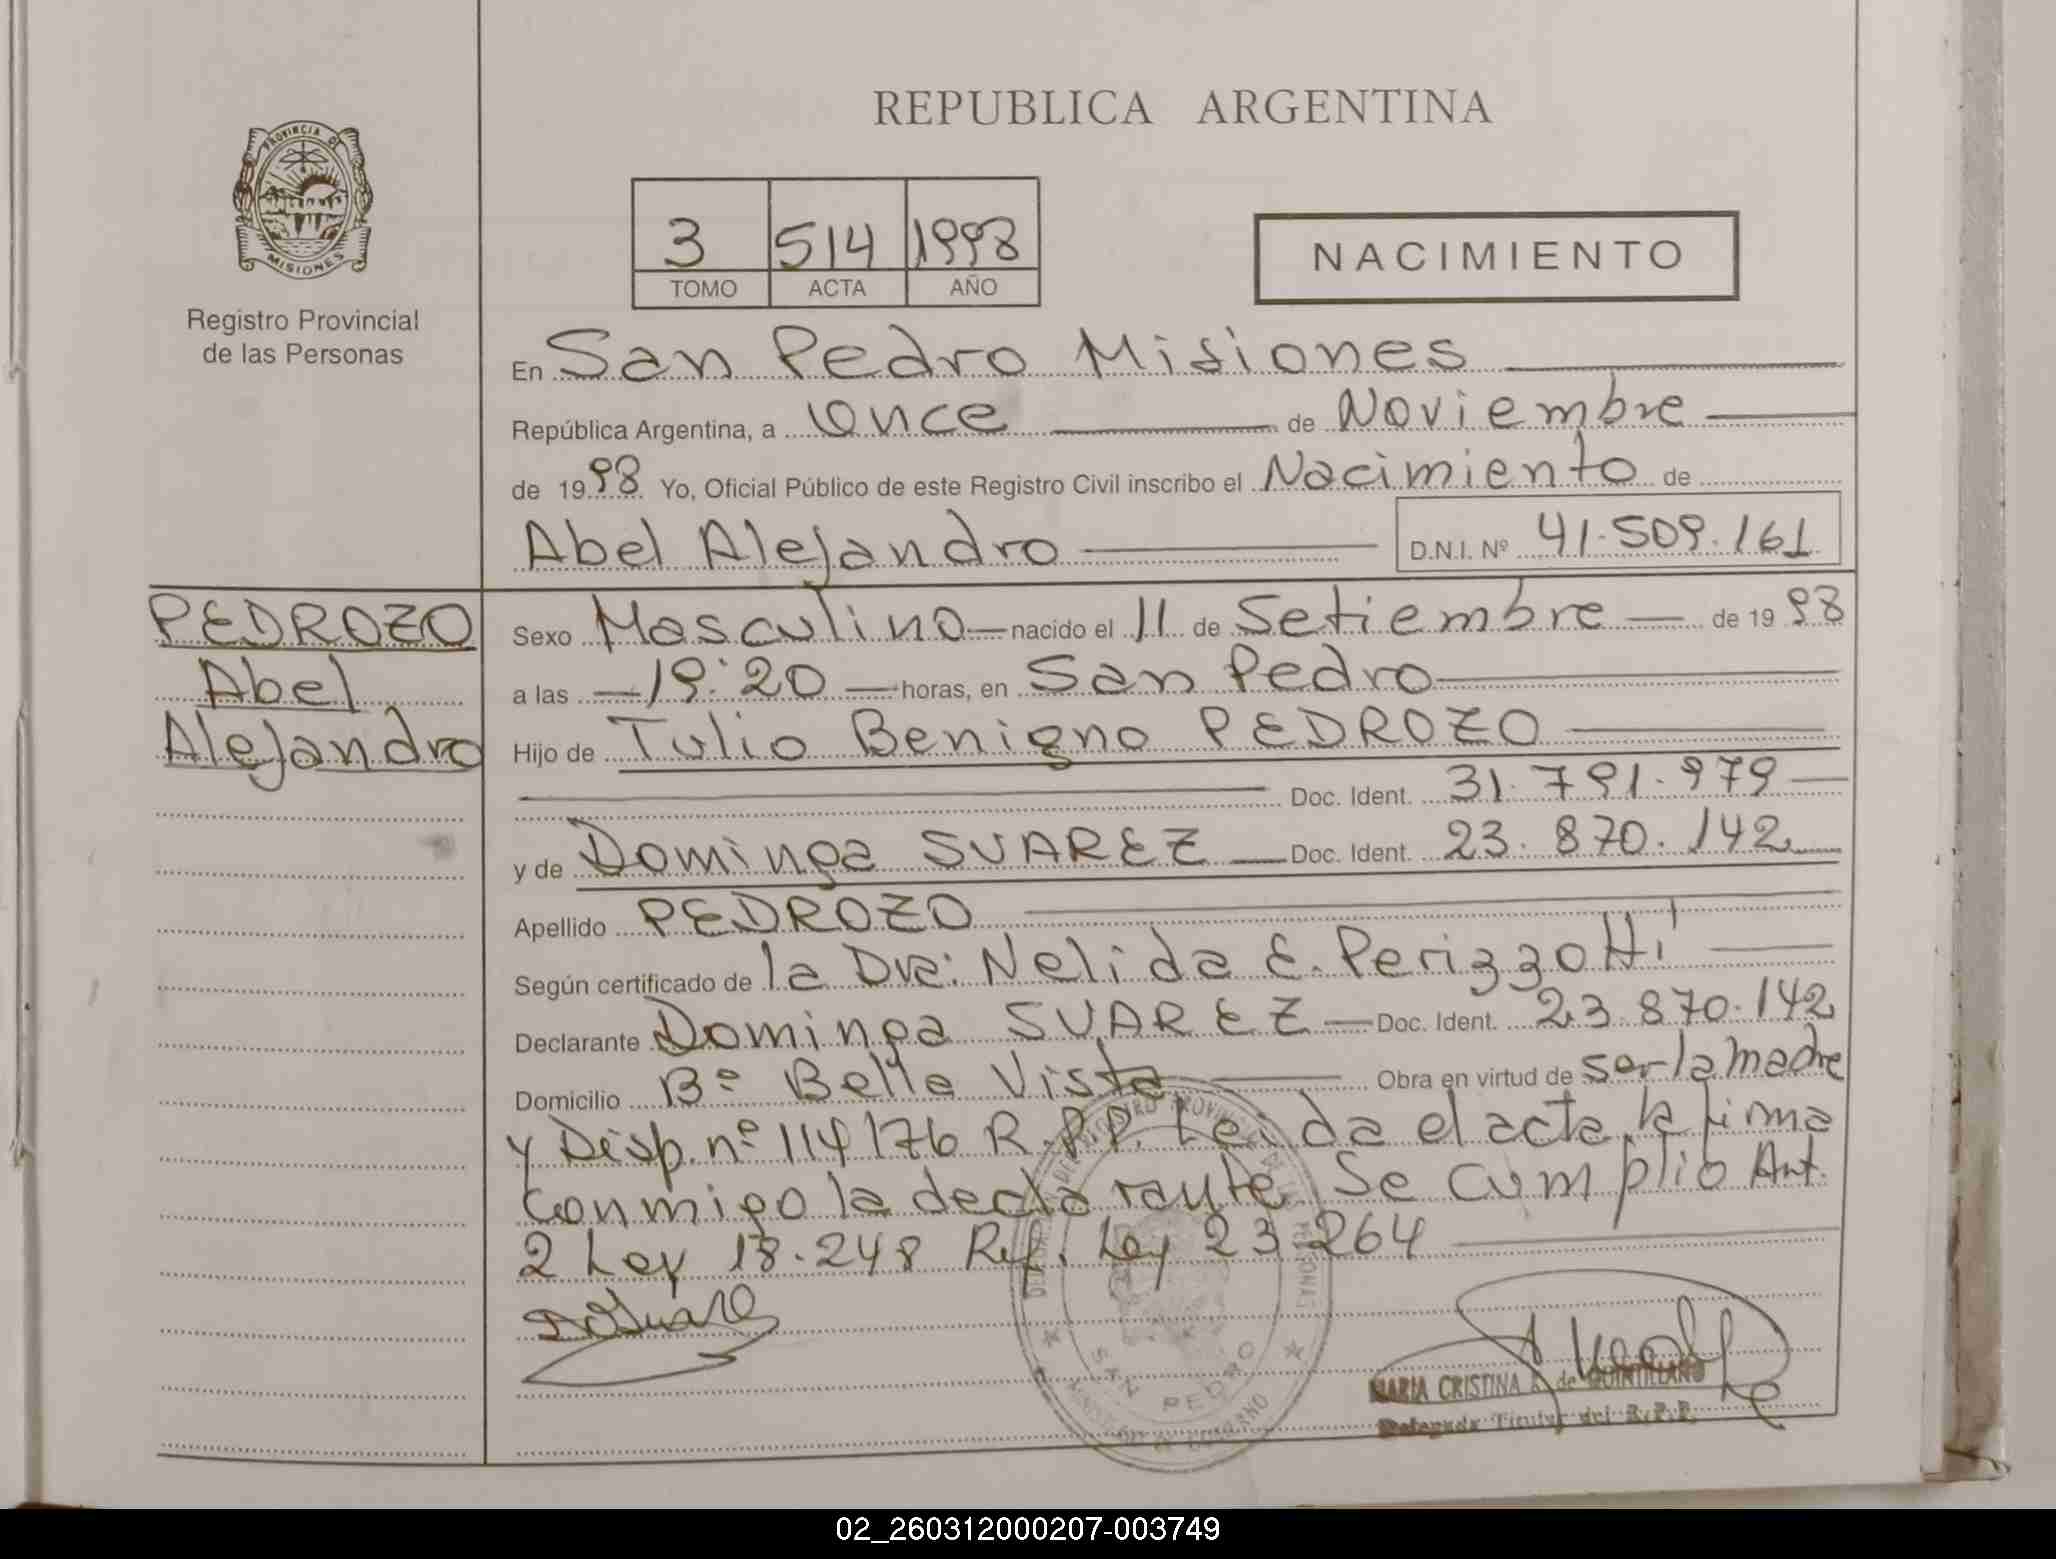 REPUBLICA ARGENTINA
PROVINCIA DE
MISIONES
Registro Provincial
de las Personas
3 514 1998
TOMO ACTA AÑO
NACIMIENTO
En San Pedro Misiones
República Argentina, a Once de Noviembre
de 1998 Yo, Oficial Público de este Registro Civil inscribo el Nacimiento de
Abel Alejandro D.N.I. Nº 41.509.161
PEDROZO
Abel
Alejandro
Sexo Masculino nacido el 11 de Setiembre de 1998
a las 19:20 horas, en San Pedro
Hijo de Tulio Benigno PEDROZO
Doc. Ident. 31.791.979
y de Dominga SUAREZ Doc. Ident. 23.870.142
Apellido PEDROZO
Según certificado de la Dra: Nelida E. Perizzotti
Declarante Dominga SUAREZ Doc. Ident. 23.870.142
Domicilio Bº Bella Vista Obra en virtud de ser la madre
y Disp. nº 114/76 R.P.P. Leida el acta la firma
conmigo la declarante. Se cumplio Art.
2 Ley 18.248 Ref. Ley 23.264
SAN PEDRO
MARIA CRISTINA de QUINTILLANO
Delegada Titular del R.P.P.
02_260312000207-003749